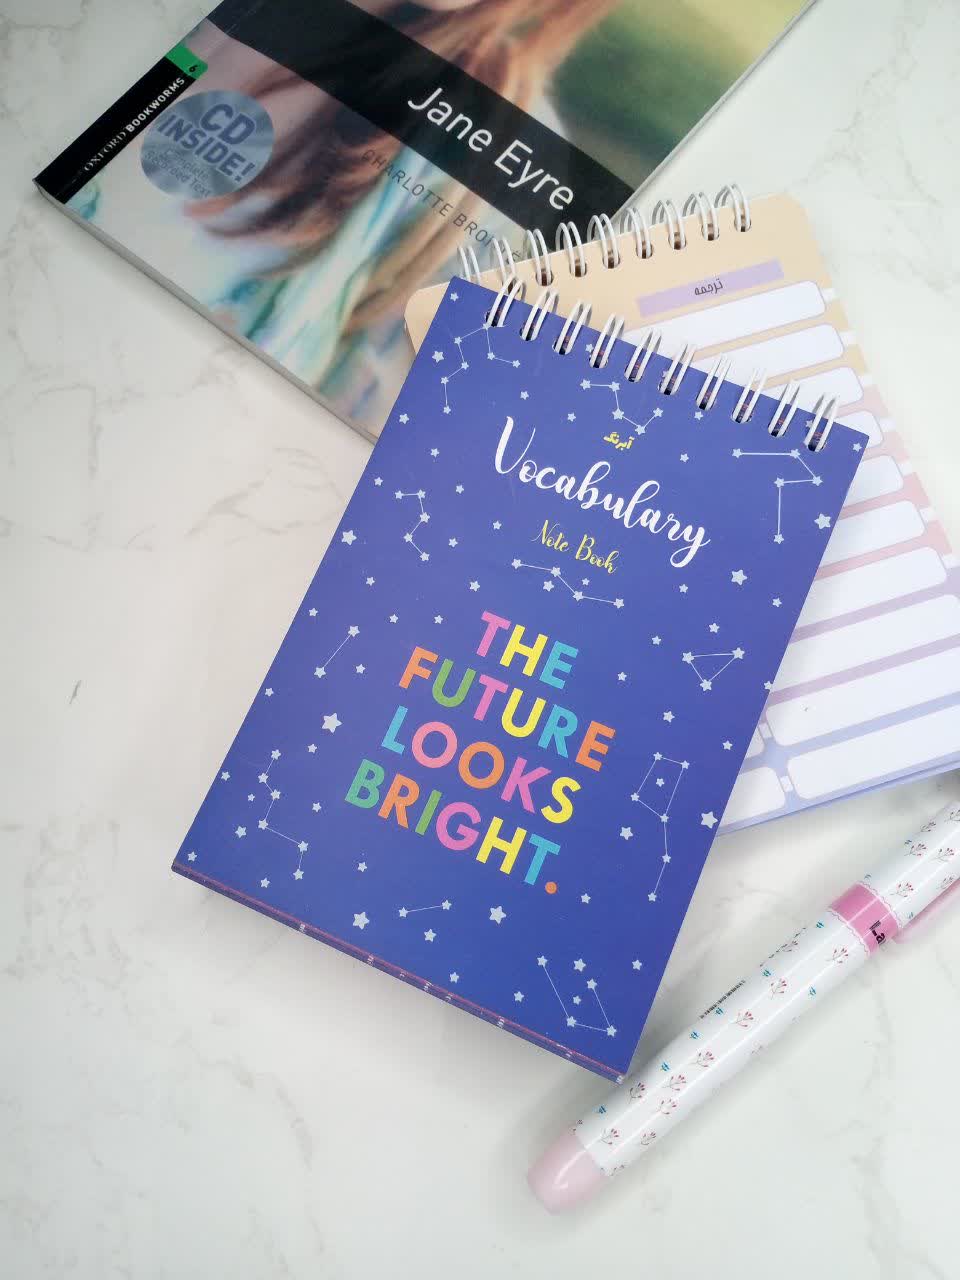 6
OXFORD BOOKWORMS
CD
INSIDE!
Complete
Recorded Text
Jane Eyre
CHARLOTTE BRONTË
ترجمه
آبرنگ
Vocabulary
Note Book
THE
FUTURE
LOOKS
BRIGHT.